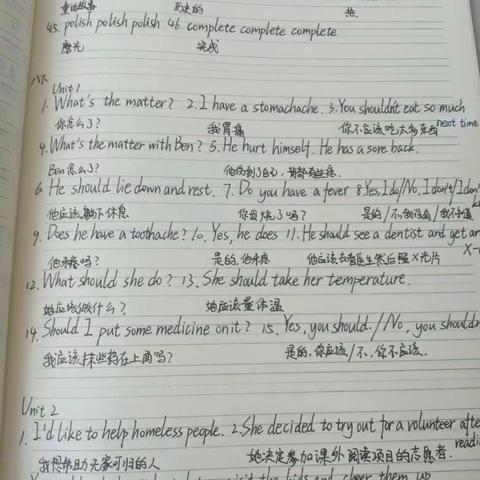 童话故事 历史的 热
45. polish polish polish 46. complete complete complete
磨光 完成
八下 Unit 1
1. What's the matter? 2. I have a stomachache. 3. You shouldn't eat so much next time
你怎么了? 我胃痛 你不应该吃太多东西
4. What's the matter with Ben? 5. He hurt himself. He has a sore back.
Ben怎么了? 他伤到了自己,
6. He should lie down and rest. 7. Do you have a fever 8. Yes, I do/No, I don't/I don't
他应该躺下休息 你发烧了吗? 是的/不,我没有/我不知道
9. Does he have a toothache? 10. Yes, he does 11. He should see a dentist and get an X-
他牙疼吗? 是的,他牙疼 他应该去看医生然后照X光片
12. What should she do? 13. She should take her temperature.
她应该做什么? 她应该量体温
14. Should I put some medicine on it? 15. Yes, you should. / No, you shouldn
我应该抹些药在上面吗? 是的,你应该/不,你不应该.
Unit 2
1. I'd like to help homeless people. 2. She decided to try out for a volunteer afte
readi
我想帮助无家可归的人 她决定参加课外阅读项目的志愿者.
visit the kids and cheer them up